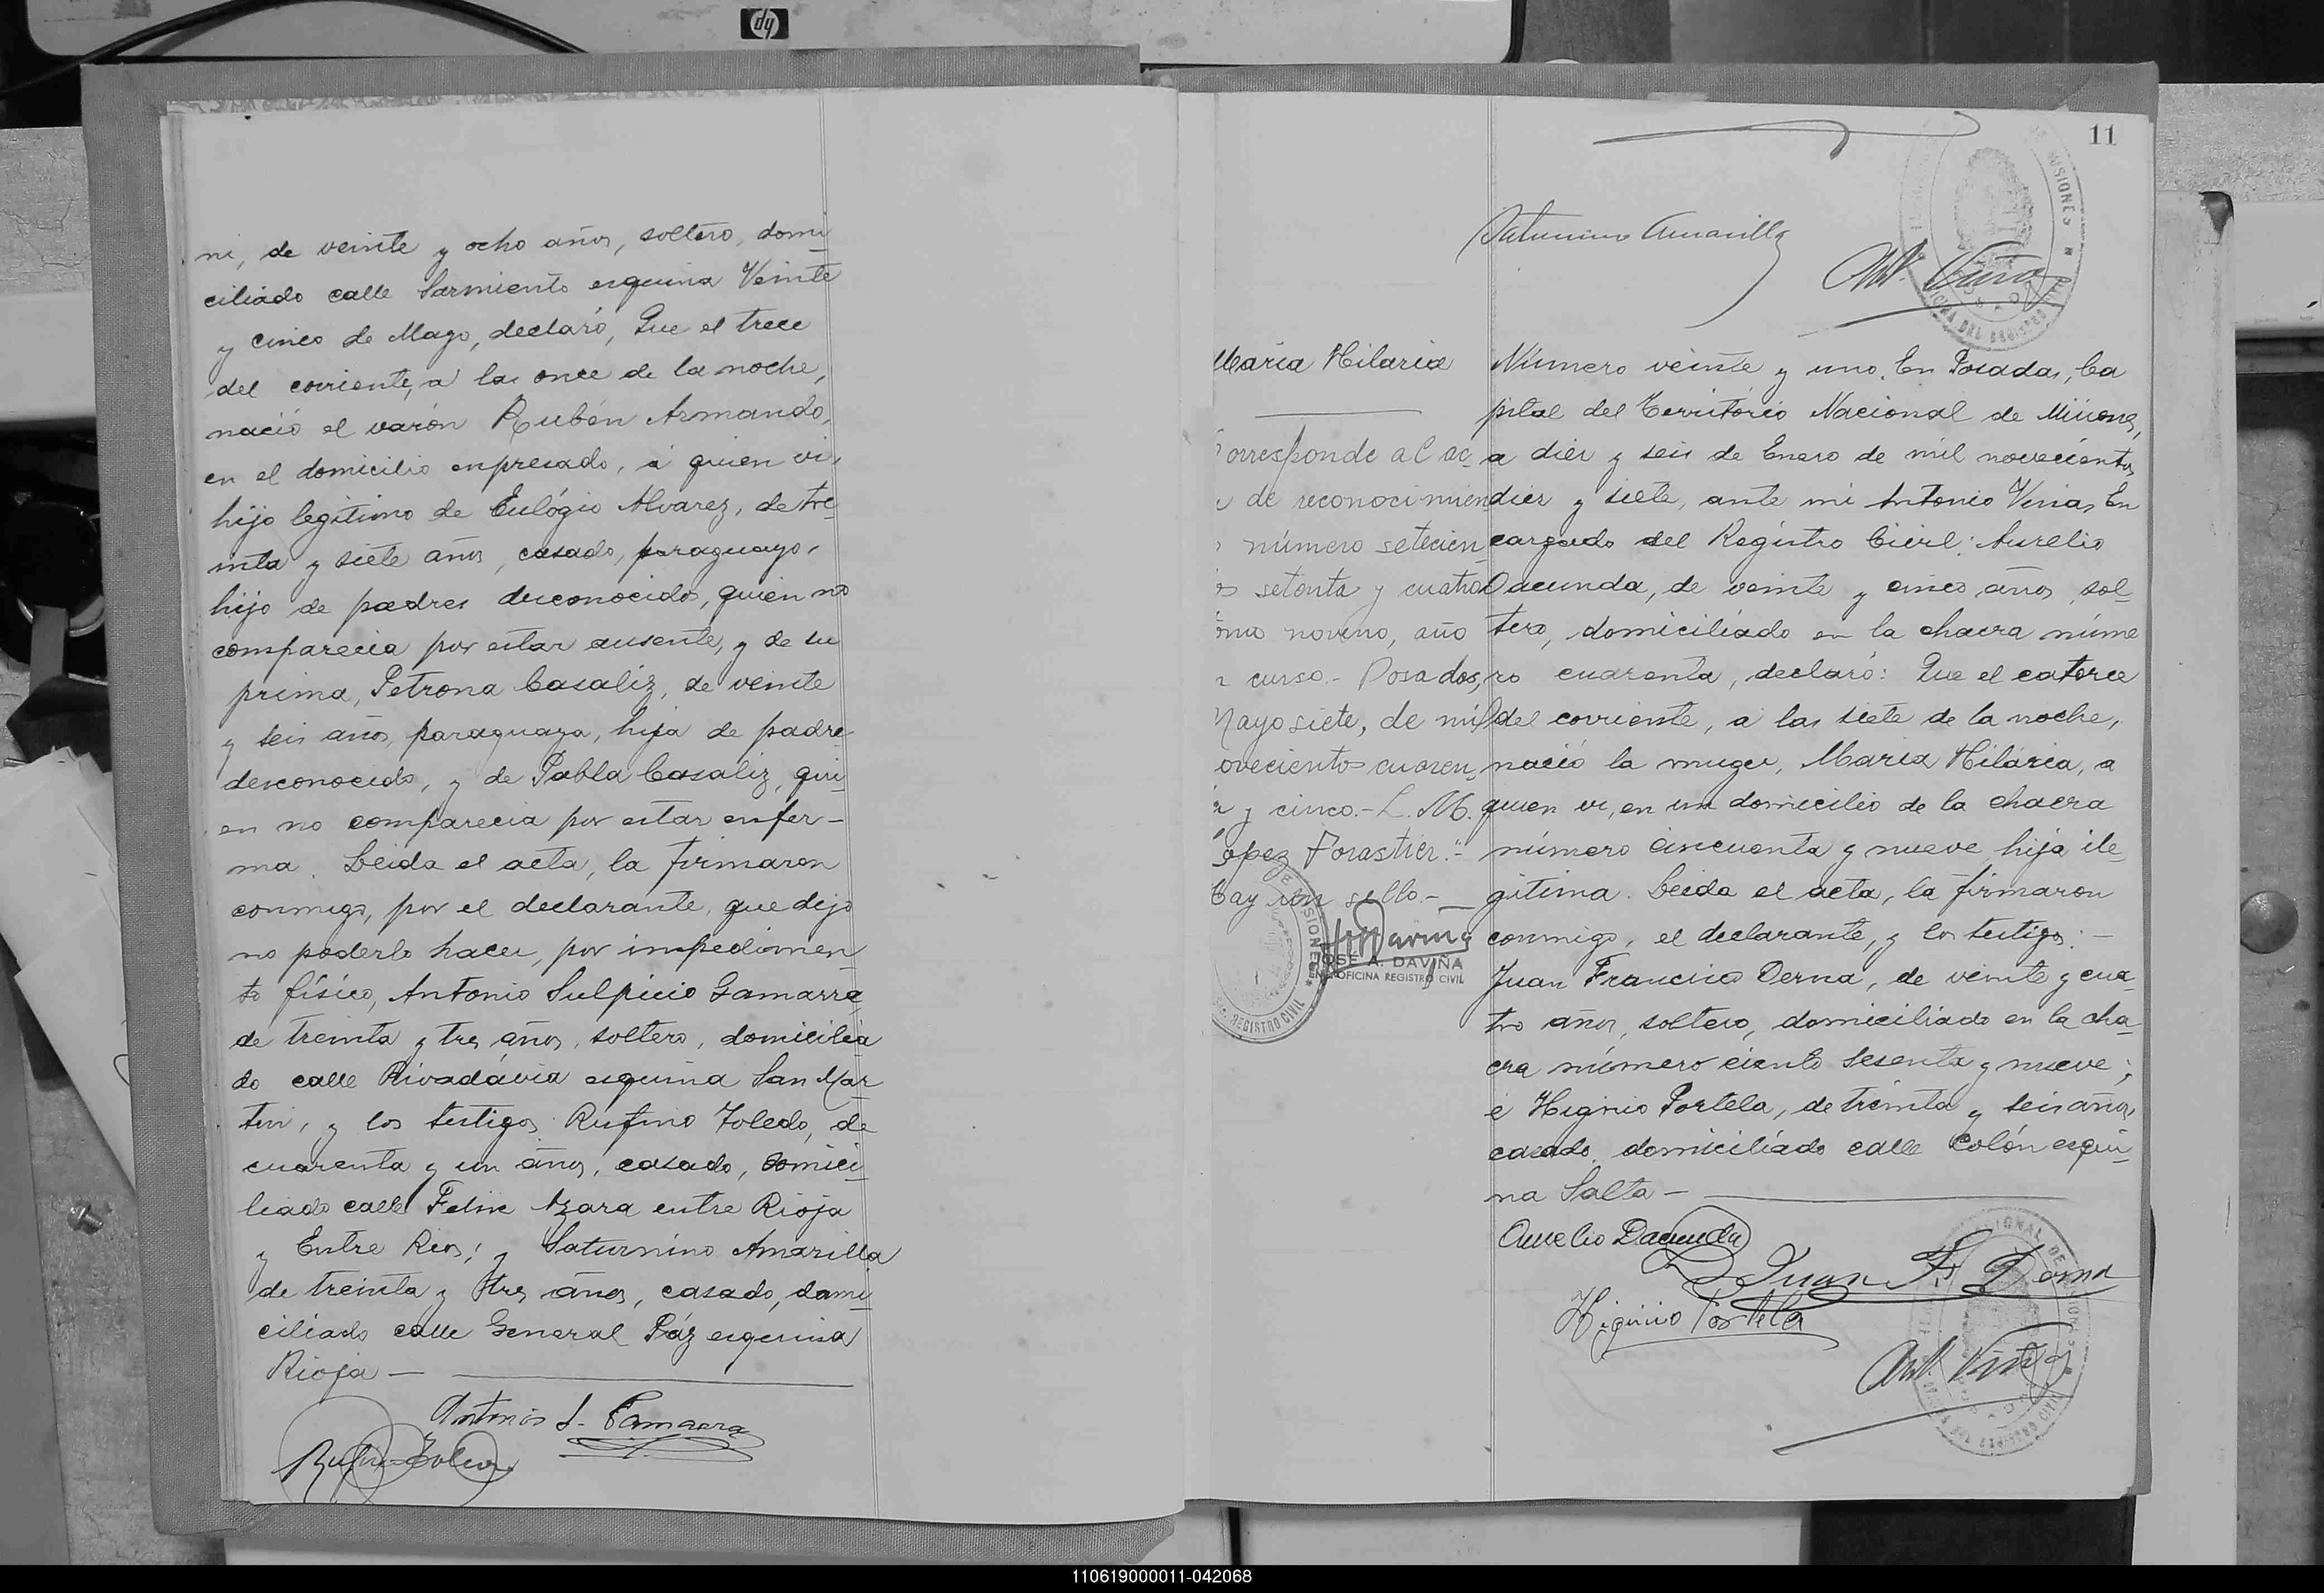 hp
ni, de veinte y ocho años, soltero, domi
ciliado calle Sarmiento esquina Veinte
y cinco de Mayo, declaró, Que el trece
del corriente, a las once de la noche,
nació el varón Rubén Armando,
en el domicilio expresado, á quien vi,
hijo legítimo de Eulógio Alvarez, de tre-
inta y siete años, casado, paraguayo,
hijo de padres desconocidos, quien no
comparecia por estar ausente, y de su
prima, Petrona Casaliz, de veinte
y seis años, paraguaya, hija de padre
desconocido, y de Pabla Casaliz, qui-
en no comparecia por estar enfer-
ma. Leida el acta, la firmaron
conmigo, por el declarante, que dijo
no poderlo hacer, por impedimen-
to físico, Antonio Sulpicio Gamarra
de treinta y tres años, soltero, domicilia
do calle Rivadávia esquina San Mar-
tin, y los testigos Rufino Toledo, de
cuarenta y un años, casado, domici-
liado calle Felix Azara entre Rioja
y Entre Rios; y Saturnino Amarilla
de treinta y tres años, casado, domi-
ciliado calle General Páz esquina
Rioja —
Antonio S. Gamarra
Rufino Toledo
11
Saturnino Amarilla
Ant. Viña
Maria Hilaria
orresponde al ac
de reconocimien
número setecien
setenta y cuatro
omo noveno, año
curso.- Posadas,
Mayo siete, de mil
oveciento cuaren
y cinco.- L. M.
opez Forastier.-
Hay un sello.-
JOSÉ A. DAVIÑA
OFICINA REGISTRO CIVIL
REGISTRO CIVIL
Número veinte y uno. En Posadas, Ca
pital del Territorio Nacional de Misiones,
a diez y seis de Enero de mil novecientos
diez y siete, ante mi Antonio Viñas, En
cargado del Registro Civil: Aurelio
Dacunda, de veinte y cinco años, sol-
tero, domiciliado en la chacra núme
ro cuarenta, declaró: Que el catorce
del corriente, a las siete de la noche,
nació la muger, Maria Hilaria, a
quien vi, en un domicilio de la chacra
número cincuenta y nueve hija ile-
gitima. Leida el acta, la firmaron
conmigo, el declarante, y los testigos: —
Juan Francisco Derna, de veinte y cua-
tro años, soltero, domiciliado en la cha-
cra número ciento sesenta y nueve;
é Higinio Portela, de treinta y seis años,
casado, domiciliado calle Colón esqui-
na Salta —
Aurelio Dacunda
Juan F. Derna
Higinio Portela
Ant. Viña
110619000011-042068